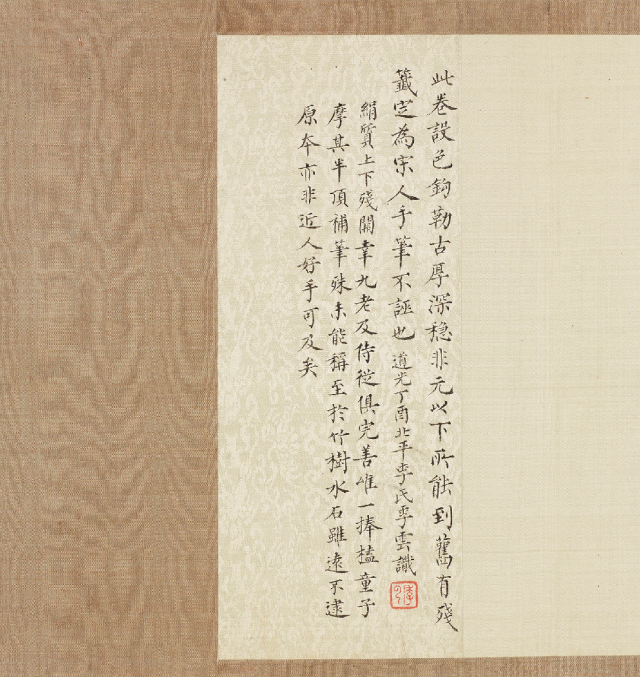 此卷設色鉤勒古厚深穩非元以下所能到舊有殘
籤定為宋人手筆不誣也道光丁酉北平李氏季雲識
絹質上下殘闕幸九老及侍從俱完善唯一捧榼童子
摩其半頂補筆殊未能稱至於竹樹水石雖遠不逮
原本亦非近人好手可及矣